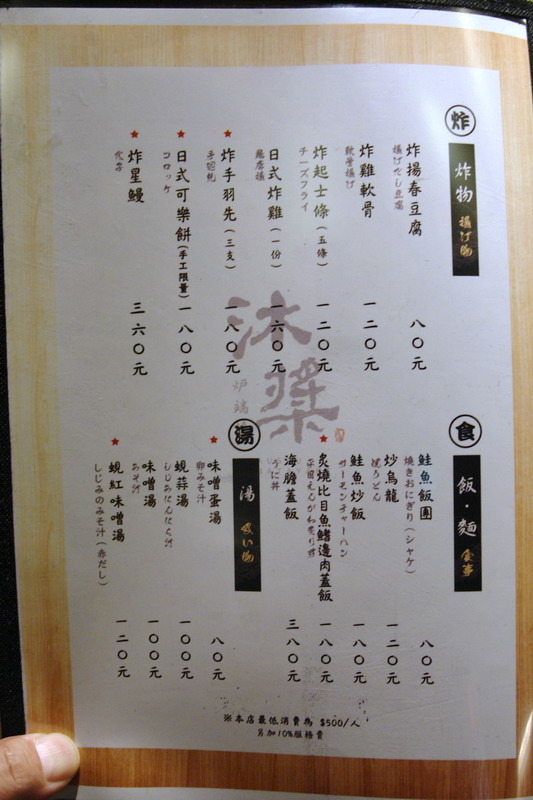 炸
炸物 揚げ物
炸揚春豆腐 八〇元
揚げだし豆腐
炸雞軟骨 一二〇元
軟骨揚げ
炸起士條(五條) 一二〇元
チーズフライ
日式炸雞(一份) 一六〇元
鶏唐揚
炸手羽先(三支) 一八〇元
手羽先
日式可樂餅(手工限量) 一八〇元
コロッケ
炸星鰻 三六〇元
穴子
沐槳
炉端
食
飯・麵 食事
鮭魚飯圑 八〇元
焼きおにぎり(シャケ)
炒烏龍 一二〇元
焼うどん
鮭魚炒飯 一八〇元
サーモンチャーハン
炙燒比目魚鰭邊肉蓋飯 一八〇元
海膽蓋飯 三八〇元
うに丼
湯
湯 吸い物
味噌蛋湯 八〇元
卵みそ汁
蜆蒜湯 一〇〇元
しじみにんにく汁
味噌湯 一〇〇元
みそ汁
蜆紅味噌湯 一二〇元
しじみのみそ汁(赤だし)
※本店最低消費為 $500/人
另加10%服務費